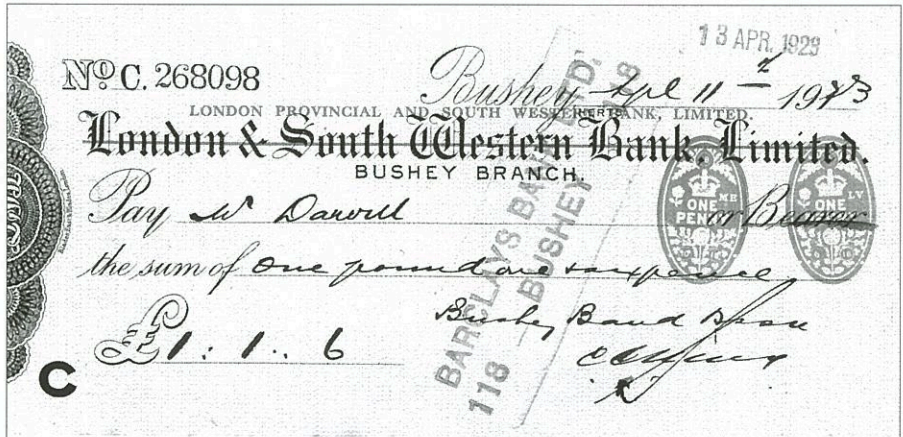 13 APR. 1923
No. C. 268098
Bushey Apl 11th 1923
LONDON PROVINCIAL AND SOUTH WESTERN BANK, LIMITED.
London & South Western Bank, Limited.
BUSHEY BRANCH.
Pay Mr Darvill or Bearer
ONE PENNY
ONE
the sum of One pound one & sixpence
Bushey Band
£1 : 1 : 6
C
BARCLAYS BANK LTD.
118 - BUSHEY 118